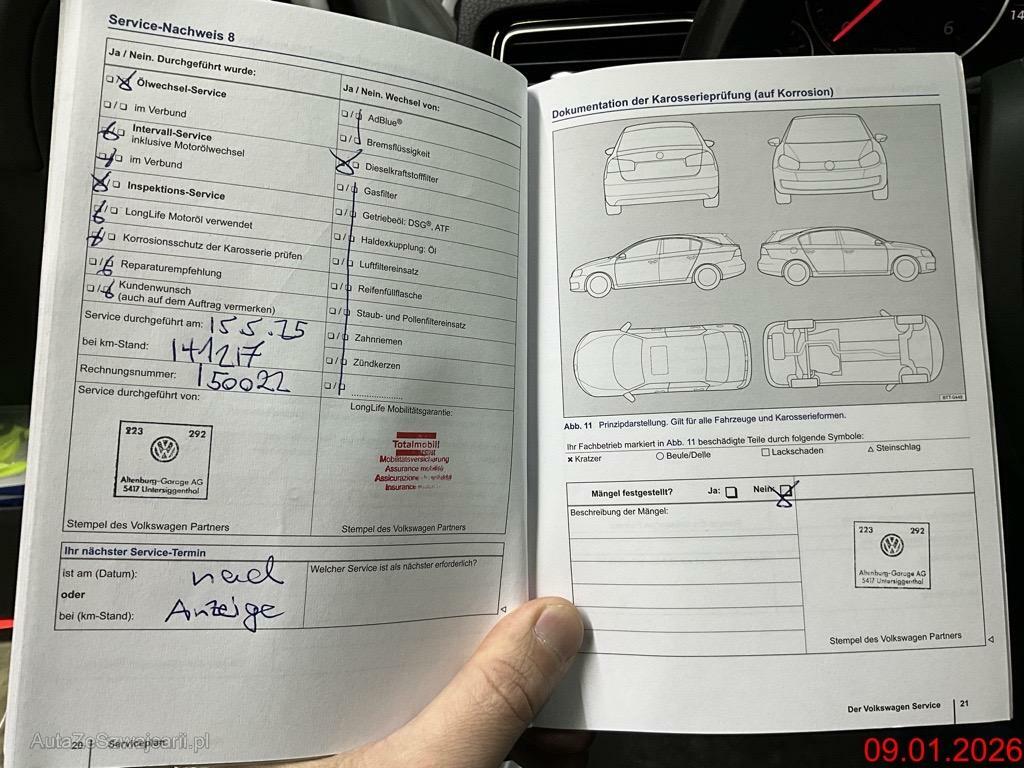 Service-Nachweis 8
Ja / Nein. Durchgeführt wurde:
Ölwechsel-Service
im Verbund
Intervall-Service
inklusive Motorölwechsel
im Verbund
Inspektions-Service
LongLife Motoröl verwendet
Korrosionsschutz der Karosserie prüfen
Reparaturempfehlung
Kundenwunsch
(auch auf dem Auftrag vermerken)
Service durchgeführt am: 15.5.25
bei km-Stand: 141217
Rechnungsnummer: 150022
Service durchgeführt von:
223 292
Altenburg-Garage AG
5417 Untersiggenthal
Stempel des Volkswagen Partners
Ja / Nein. Wechsel von:
AdBlue®
Bremsflüssigkeit
Dieselkraftstofffilter
Gasfilter
Getriebeöl: DSG®, ATF
Haldexkupplung: Öl
Luftfiltereinsatz
Reifenfüllflasche
Staub- und Pollenfiltereinsatz
Zahnriemen
Zündkerzen
LongLife Mobilitätsgarantie:
Totalmobil!
Mobilitätsversicherung
Assurance mobilité
Assicurazione
Insurance
Stempel des Volkswagen Partners
Ihr nächster Service-Termin
ist am (Datum): nach
oder
bei (km-Stand): Anzeige
Welcher Service ist als nächster erforderlich?
20 Serviceplan
Dokumentation der Karosserieprüfung (auf Korrosion)
BTT-0449
Abb. 11 Prinzipdarstellung. Gilt für alle Fahrzeuge und Karosserieformen.
Ihr Fachbetrieb markiert in Abb. 11 beschädigte Teile durch folgende Symbole:
× Kratzer ○ Beule/Delle □ Lackschaden △ Steinschlag
Mängel festgestellt? Ja: Nein:
Beschreibung der Mängel:
223 292
Altenburg-Garage AG
5417 Untersiggenthal
Stempel des Volkswagen Partners
Der Volkswagen Service 21
6
14
AutaZeSzwajcarii.pl
09.01.2026